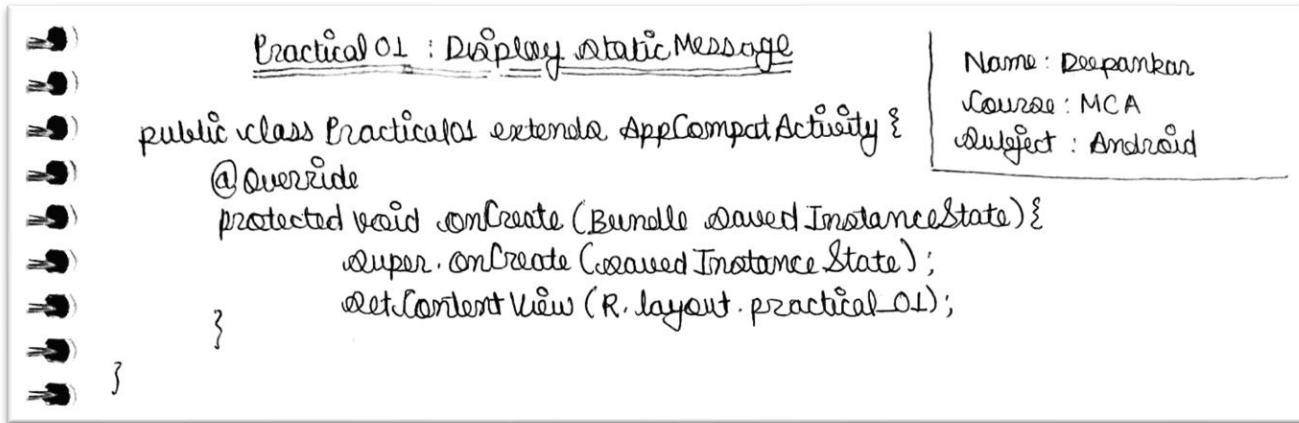 Practical 01 : Display Static Message
Name : Deepankar
Course : MCA
Subject : Android
public class Practical01 extends AppCompatActivity {
@Override
protected void onCreate (Bundle savedInstanceState) {
super.onCreate (savedInstanceState);
setContentView (R.layout.practical_01);
}
}